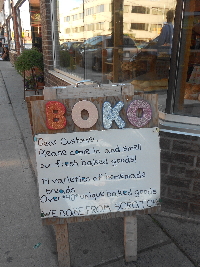 BOKO
Dear Customer,
Please come in and smell
our fresh baked goods!
11 varieties of homemade
breads
Over "40" unique baked goods
WE BAKE FROM SCRATCH